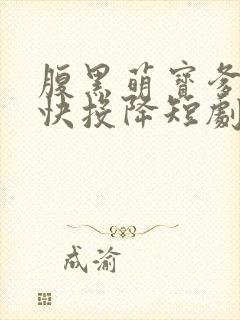 腹黑萌寶爹
快投降短劇
成渝